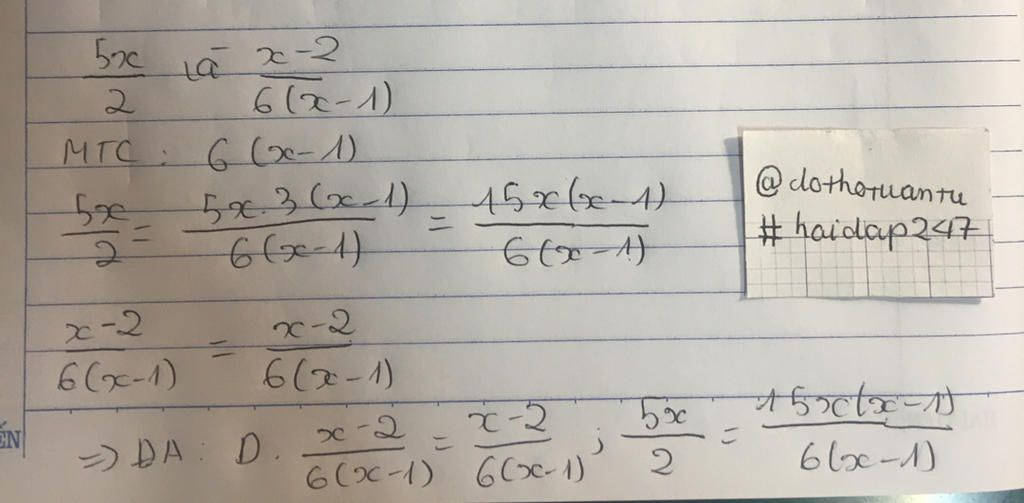 5x/2 và (x-2)/(6(x-1))
MTC: 6(x-1)
5x/2 = (5x.3(x-1))/(6(x-1)) = (15x(x-1))/(6(x-1))
@dothotuantu
#haidap247
(x-2)/(6(x-1)) = (x-2)/(6(x-1))
=> DA: D. (x-2)/(6(x-1)) = (x-2)/(6(x-1)); 5x/2 = (15x(x-1))/(6(x-1))